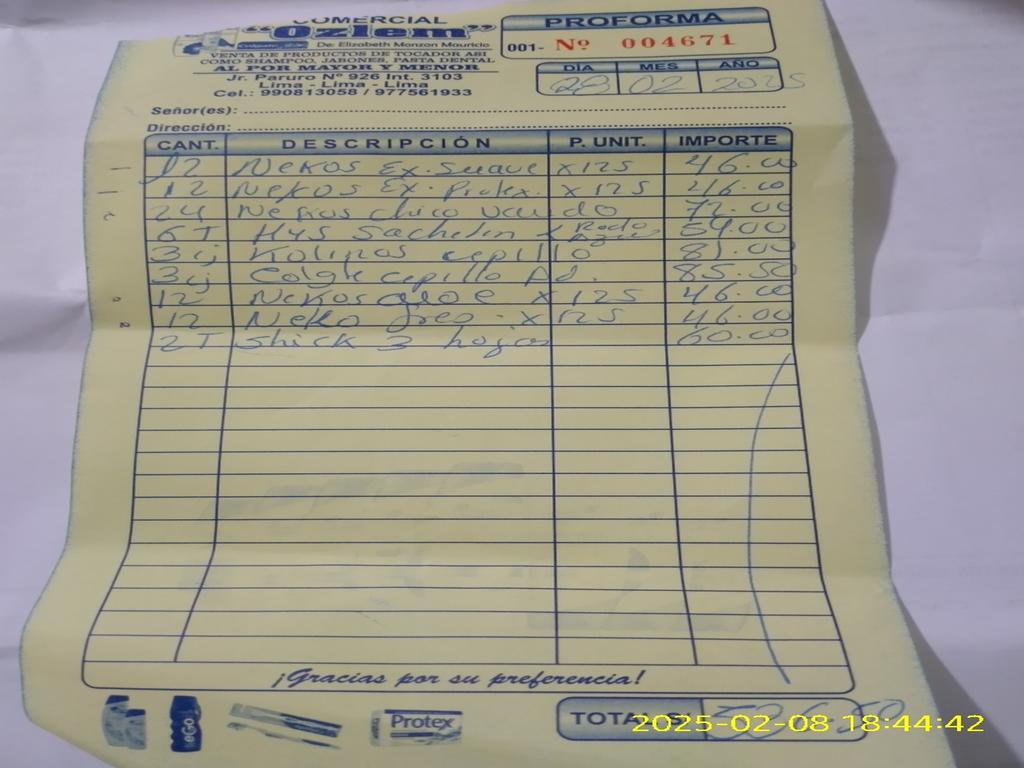 COMERCIAL
"Ozlem"
De: Elizabeth Monzon Mauricio
VENTA DE PRODUCTOS DE TOCADOR ASI
COMO SHAMPOO, JABONES, PASTA DENTAL
AL POR MAYOR Y MENOR
Jr. Paruro Nº 926 Int. 3103
Lima - Lima - Lima
Cel.: 990813058 / 977561933
PROFORMA
001- Nº 004671
DÍA MES AÑO
02 2025
Señor(es):
Dirección:
CANT. DESCRIPCIÓN P. UNIT. IMPORTE
12 Nekos Ex. Suave x 125 46.00
12 Nekos Ex. Protex. x 125 46.00
24 Nekos chico 72.00
6T HyS Sachet 54.00
3 cj Kolinos cepillo 81.00
3 cj Colgte cepillo Ad. 85.50
12 Nekos aloe x 125 46.00
12 Neko x 125 46.00
2T Shick 3 hojas 60.00
¡Gracias por su preferencia!
eGo
Protex
TOTAL S/.
2025-02-08 18:44:42